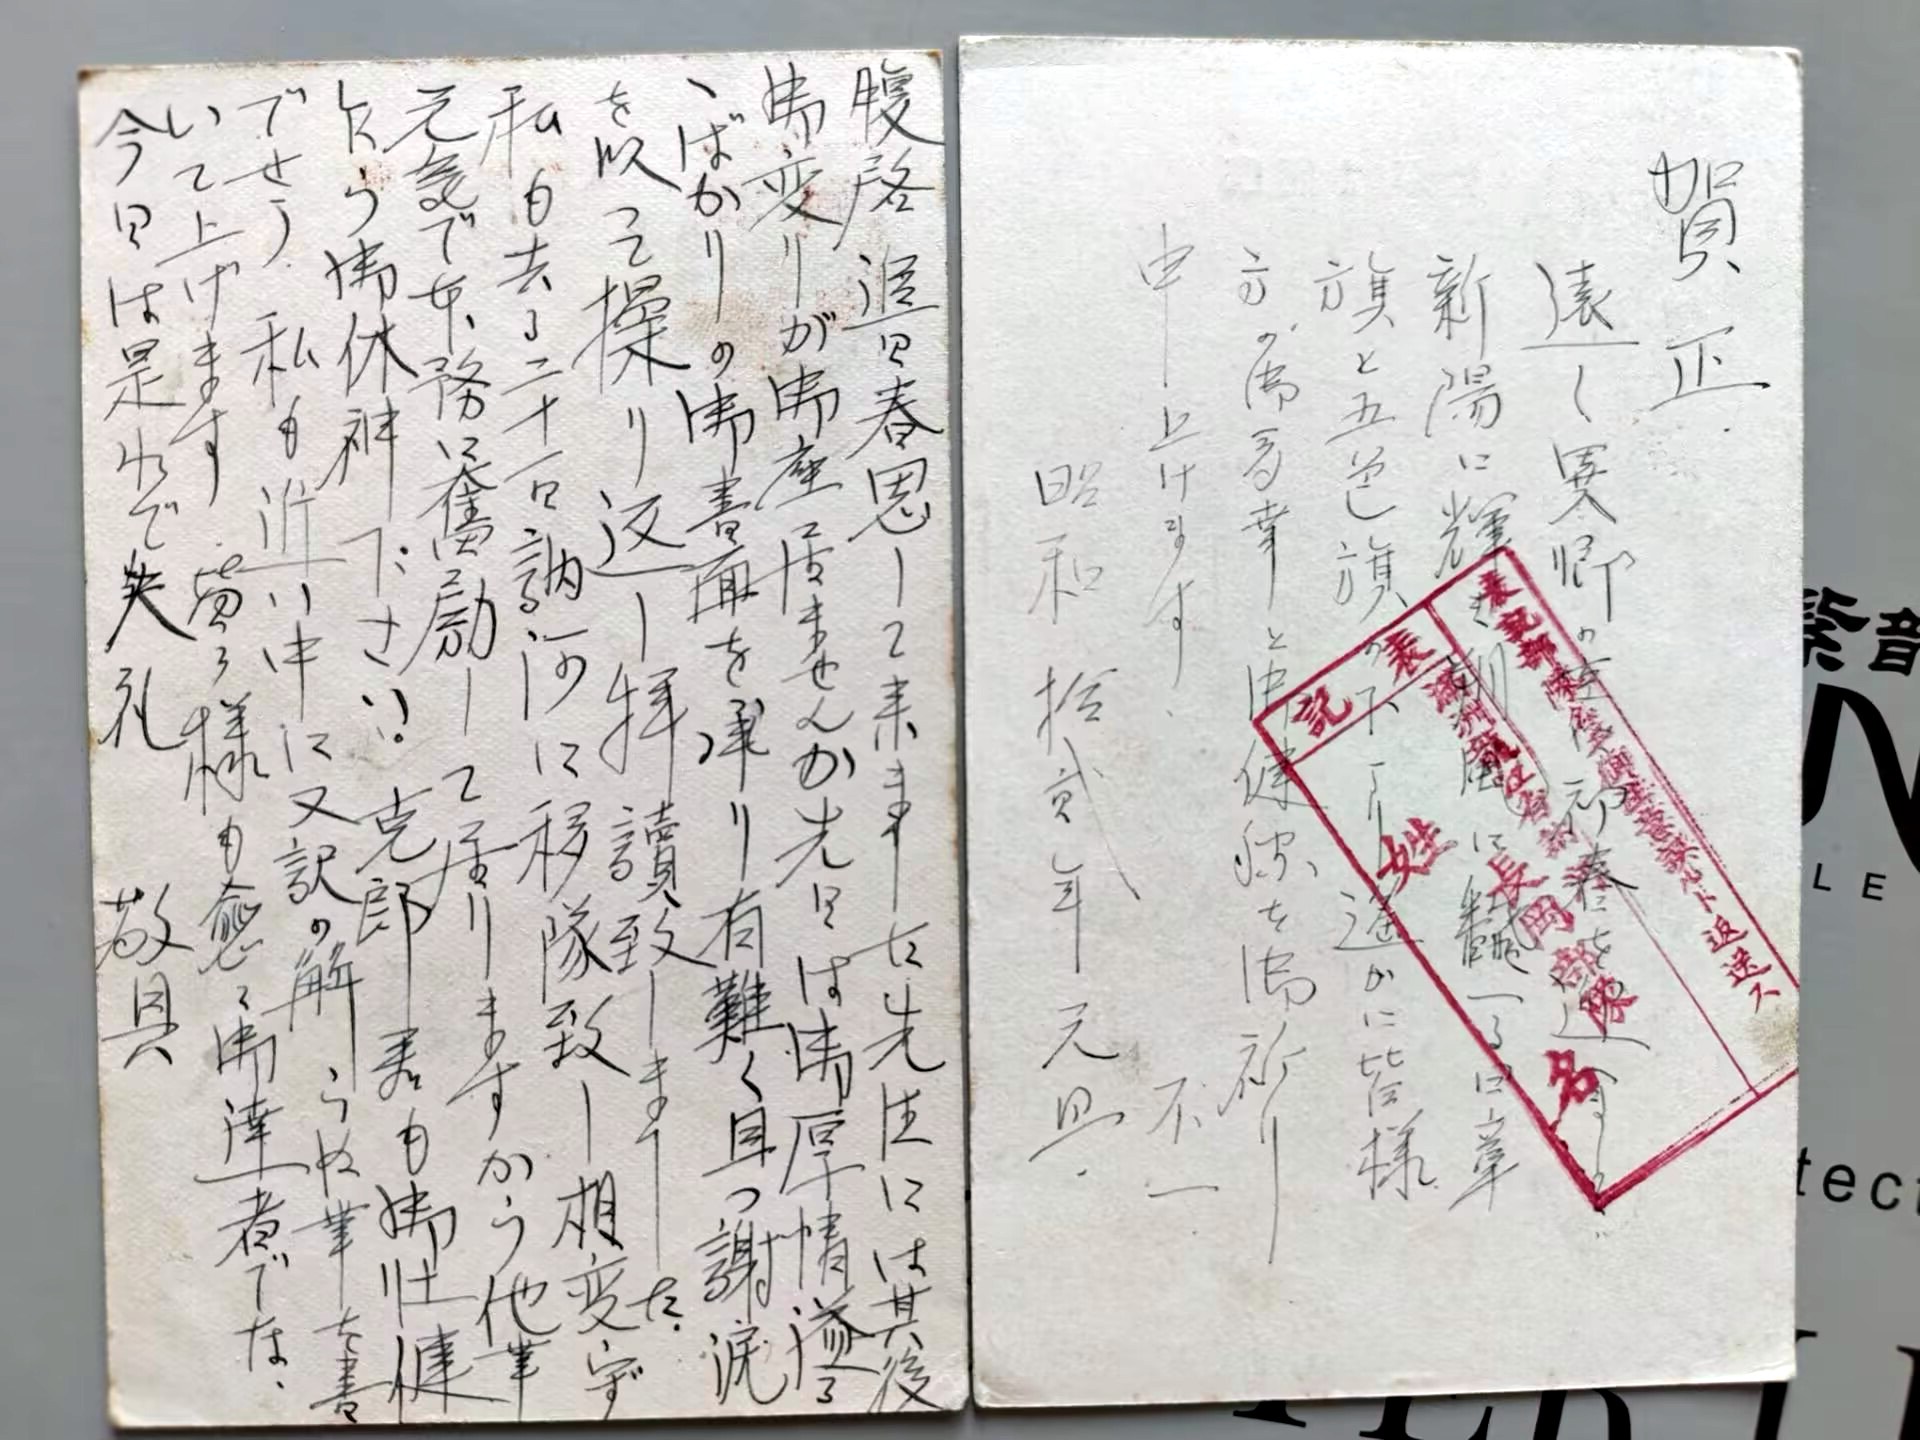 賀正
遠く異郷の空に初春を迎へまして
新陽に輝き朝風に飜へる日章
旗と五色旗の下より遥かに皆様
方の御多幸と御健康を御祈り
申上げます 不一
昭和拾弐年元旦
表記部隊
満洲龍江省訥河
長岡部隊
表記
姓名
返送ス
腹啓 追日春思して来ました先生には其後
御変りが御座居ませんか先日は御厚情溢る
ゝばかりの御書面を承り有難く且つ謝涙
を以って操り返し拝讀致しました。
私も去る二十一日訥河に移隊致し相変らず
元気で女務に奮励して居りますから他事
乍ら御休神下さい。克郎君も御壮健
でせう 私も近い中に又訳の解らぬ事を書
いて上げます 皆々様も愈々御達者でな。
今日は是れで失礼 敬具
紫音
LE
tect